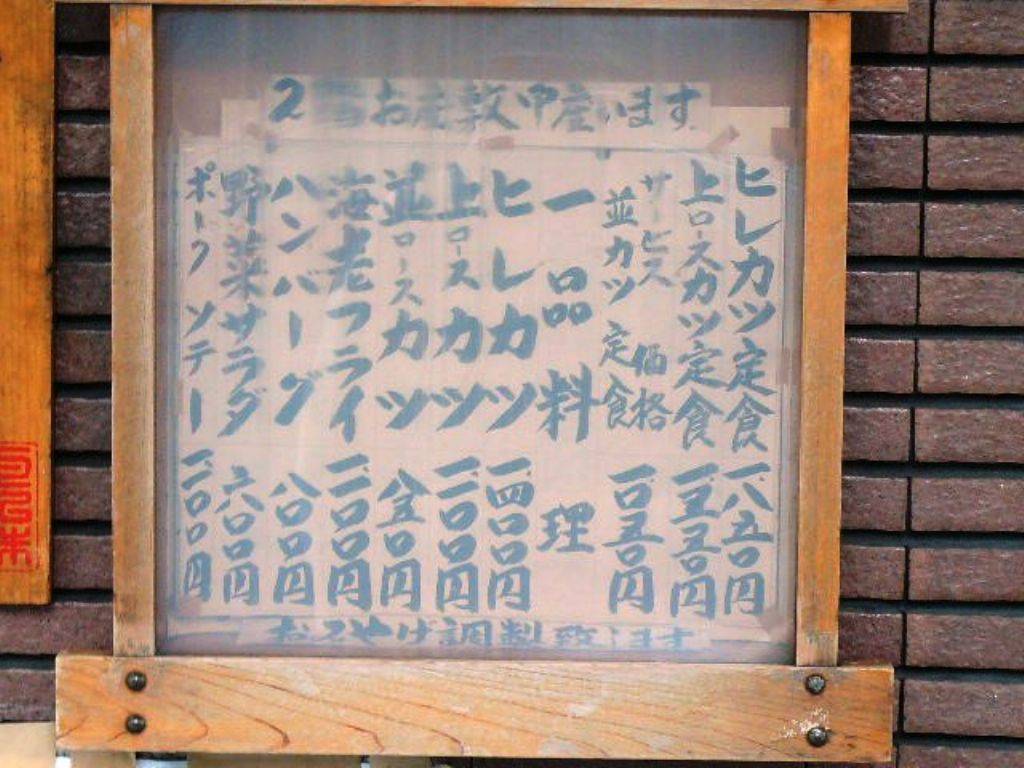 2 お座敷御座います
ヒレカツ定食 一.八五〇円
上ロースカツ定食 一.五五〇円
サービス価格
並カツ定食 一.〇五〇円
一品料理
ヒレカツ 一.四〇〇円
上ロースカツ 一.一〇〇円
並ロースカツ 八五〇円
海老フライ 一.一〇〇円
ハンバーグ 八〇〇円
野菜サラダ 六〇〇円
ポークソテー 一.一〇〇円
おみやげ調製致します